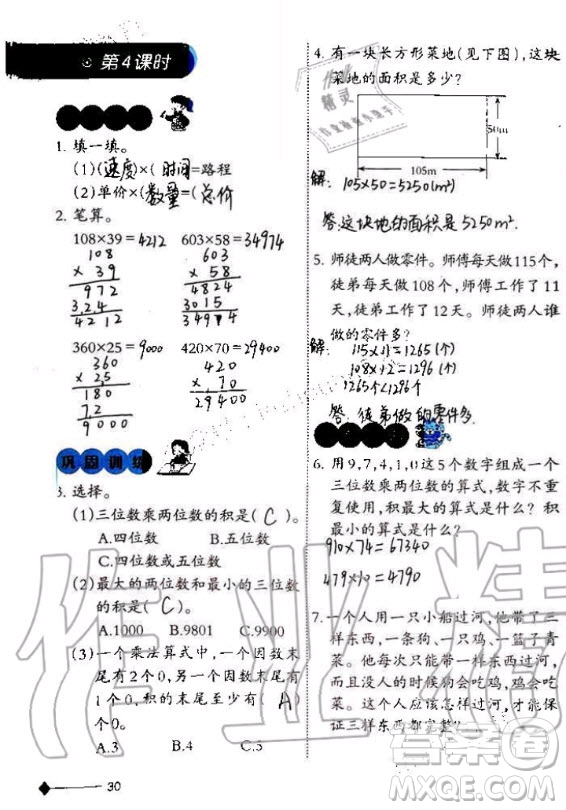 第4课时
1. 填一填。
(1)(速度)×(时间)=路程
(2)单价×(数量)=(总价)
2. 笔算。
108×39=4212 603×58=34974
108 603
× 39 × 58
972 4824
324 3015
4212 34974
360×25=9000 420×70=29400
360 420
× 25 × 70
180 29400
72
9000
巩固训练
3. 选择。
(1)三位数乘两位数的积是( C )。
A.四位数 B.五位数
C.四位数或五位数
(2)最大的两位数和最小的三位数
的积是( C )。
A.1000 B.9801 C.9900
(3)一个乘法算式中,一个因数末
尾有2个0,另一个因数末尾有
1个0,积的末尾至少有( A )
个0。
A.3 B.4 C.5
30
4. 有一块长方形菜地(见下图),这块
菜地的面积是多少?
50m
105m
解:105×50=5250(m²)
答:这块地的面积是5250m².
5. 师徒两人做零件。师傅每天做115个,
徒弟每天做108个,师傅工作了11
天,徒弟工作了12天。师徒两人谁
做的零件多?
解:115×11=1265(个)
108×12=1296(个)
1265个<1296个
答:徒弟做的零件多.
6. 用9,7,4,1,0这5个数字组成一个
三位数乘两位数的算式,数字不重
复使用,积最大的算式是什么?积
最小的算式是什么?
910×74=67340
479×10=4790
7. 一个人用一只小船过河,他带了三
样东西,一条狗、一只鸡,一篮生
菜。他每次只能带一样东西过河,
而且没人的时候狗会吃鸡,鸡会吃
菜。这个人应该怎样过河,才能保
证三样东西都完整?
作业精灵
答案卷
MXQE.COM